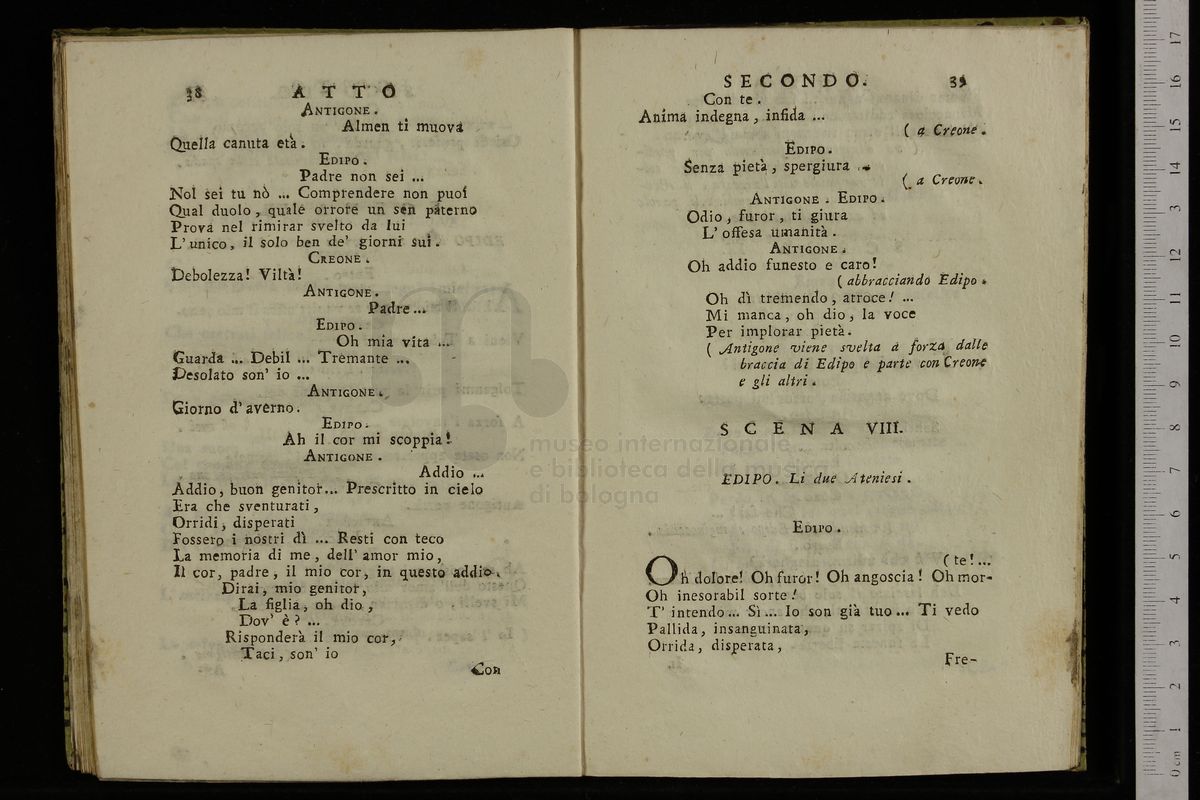 38 ATTO
ANTIGONE.
Almen ti muova
Quella canuta età.
EDIPO.
Padre non sei ...
Nol sei tu nò ... Comprendere non puoi
Qual duolo, quale orrore un sen paterno
Prova nel rimirar svelto da lui
L'unico, il solo ben de' giorni sui.
CREONE.
Debolezza! Viltà!
ANTIGONE.
Padre...
EDIPO.
Oh mia vita ...
Guarda ... Debil ... Tremante ...
Desolato son' io ...
ANTIGONE.
Giorno d'averno.
EDIPO.
Ah il cor mi scoppia!
ANTIGONE.
Addio ...
Addio, buon genitor... Prescritto in cielo
Era che sventurati,
Orridi, disperati
Fossero i nostri dì ... Resti con teco
La memoria di me, dell' amor mio,
Il cor, padre, il mio cor, in questo addio.
Dirai, mio genitor,
La figlia, oh dio,
Dov' è? ...
Risponderà il mio cor,
Taci, son' io
Con
SECONDO. 39
Con te.
Anima indegna, infida ...
( a Creone.
EDIPO.
Senza pietà, spergiura ..
( a Creone.
ANTIGONE. EDIPO.
Odio, furor, ti giura
L' offesa umanità.
ANTIGONE.
Oh addio funesto e caro!
( abbracciando Edipo.
Oh dì tremendo, atroce! ...
Mi manca, oh dio, la voce
Per implorar pietà.
( Antigone viene svelta a forza dalle
braccia di Edipo e parte con Creone
e gli altri.
SCENA VIII.
EDIPO. Li due Ateniesi.
EDIPO.
( te!...
Oh dolore! Oh furor! Oh angoscia! Oh mor-
Oh inesorabil sorte!
T' intendo... Sì... Io son già tuo... Ti vedo
Pallida, insanguinata,
Orrida, disperata,
Fre-
museo internazionale
e biblioteca della musica
di bologna
0 cm 1 2 3 4 5 6 7 8 9 10 11 12 13 14 15 16 17